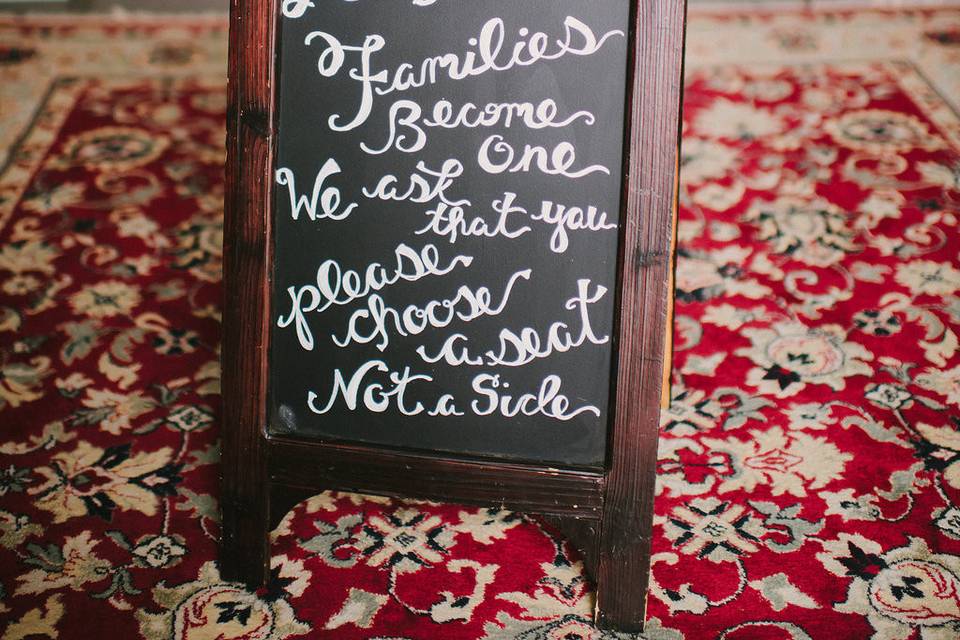 Families
Become
One
We ask
that you
please
choose
a seat
Not a Side